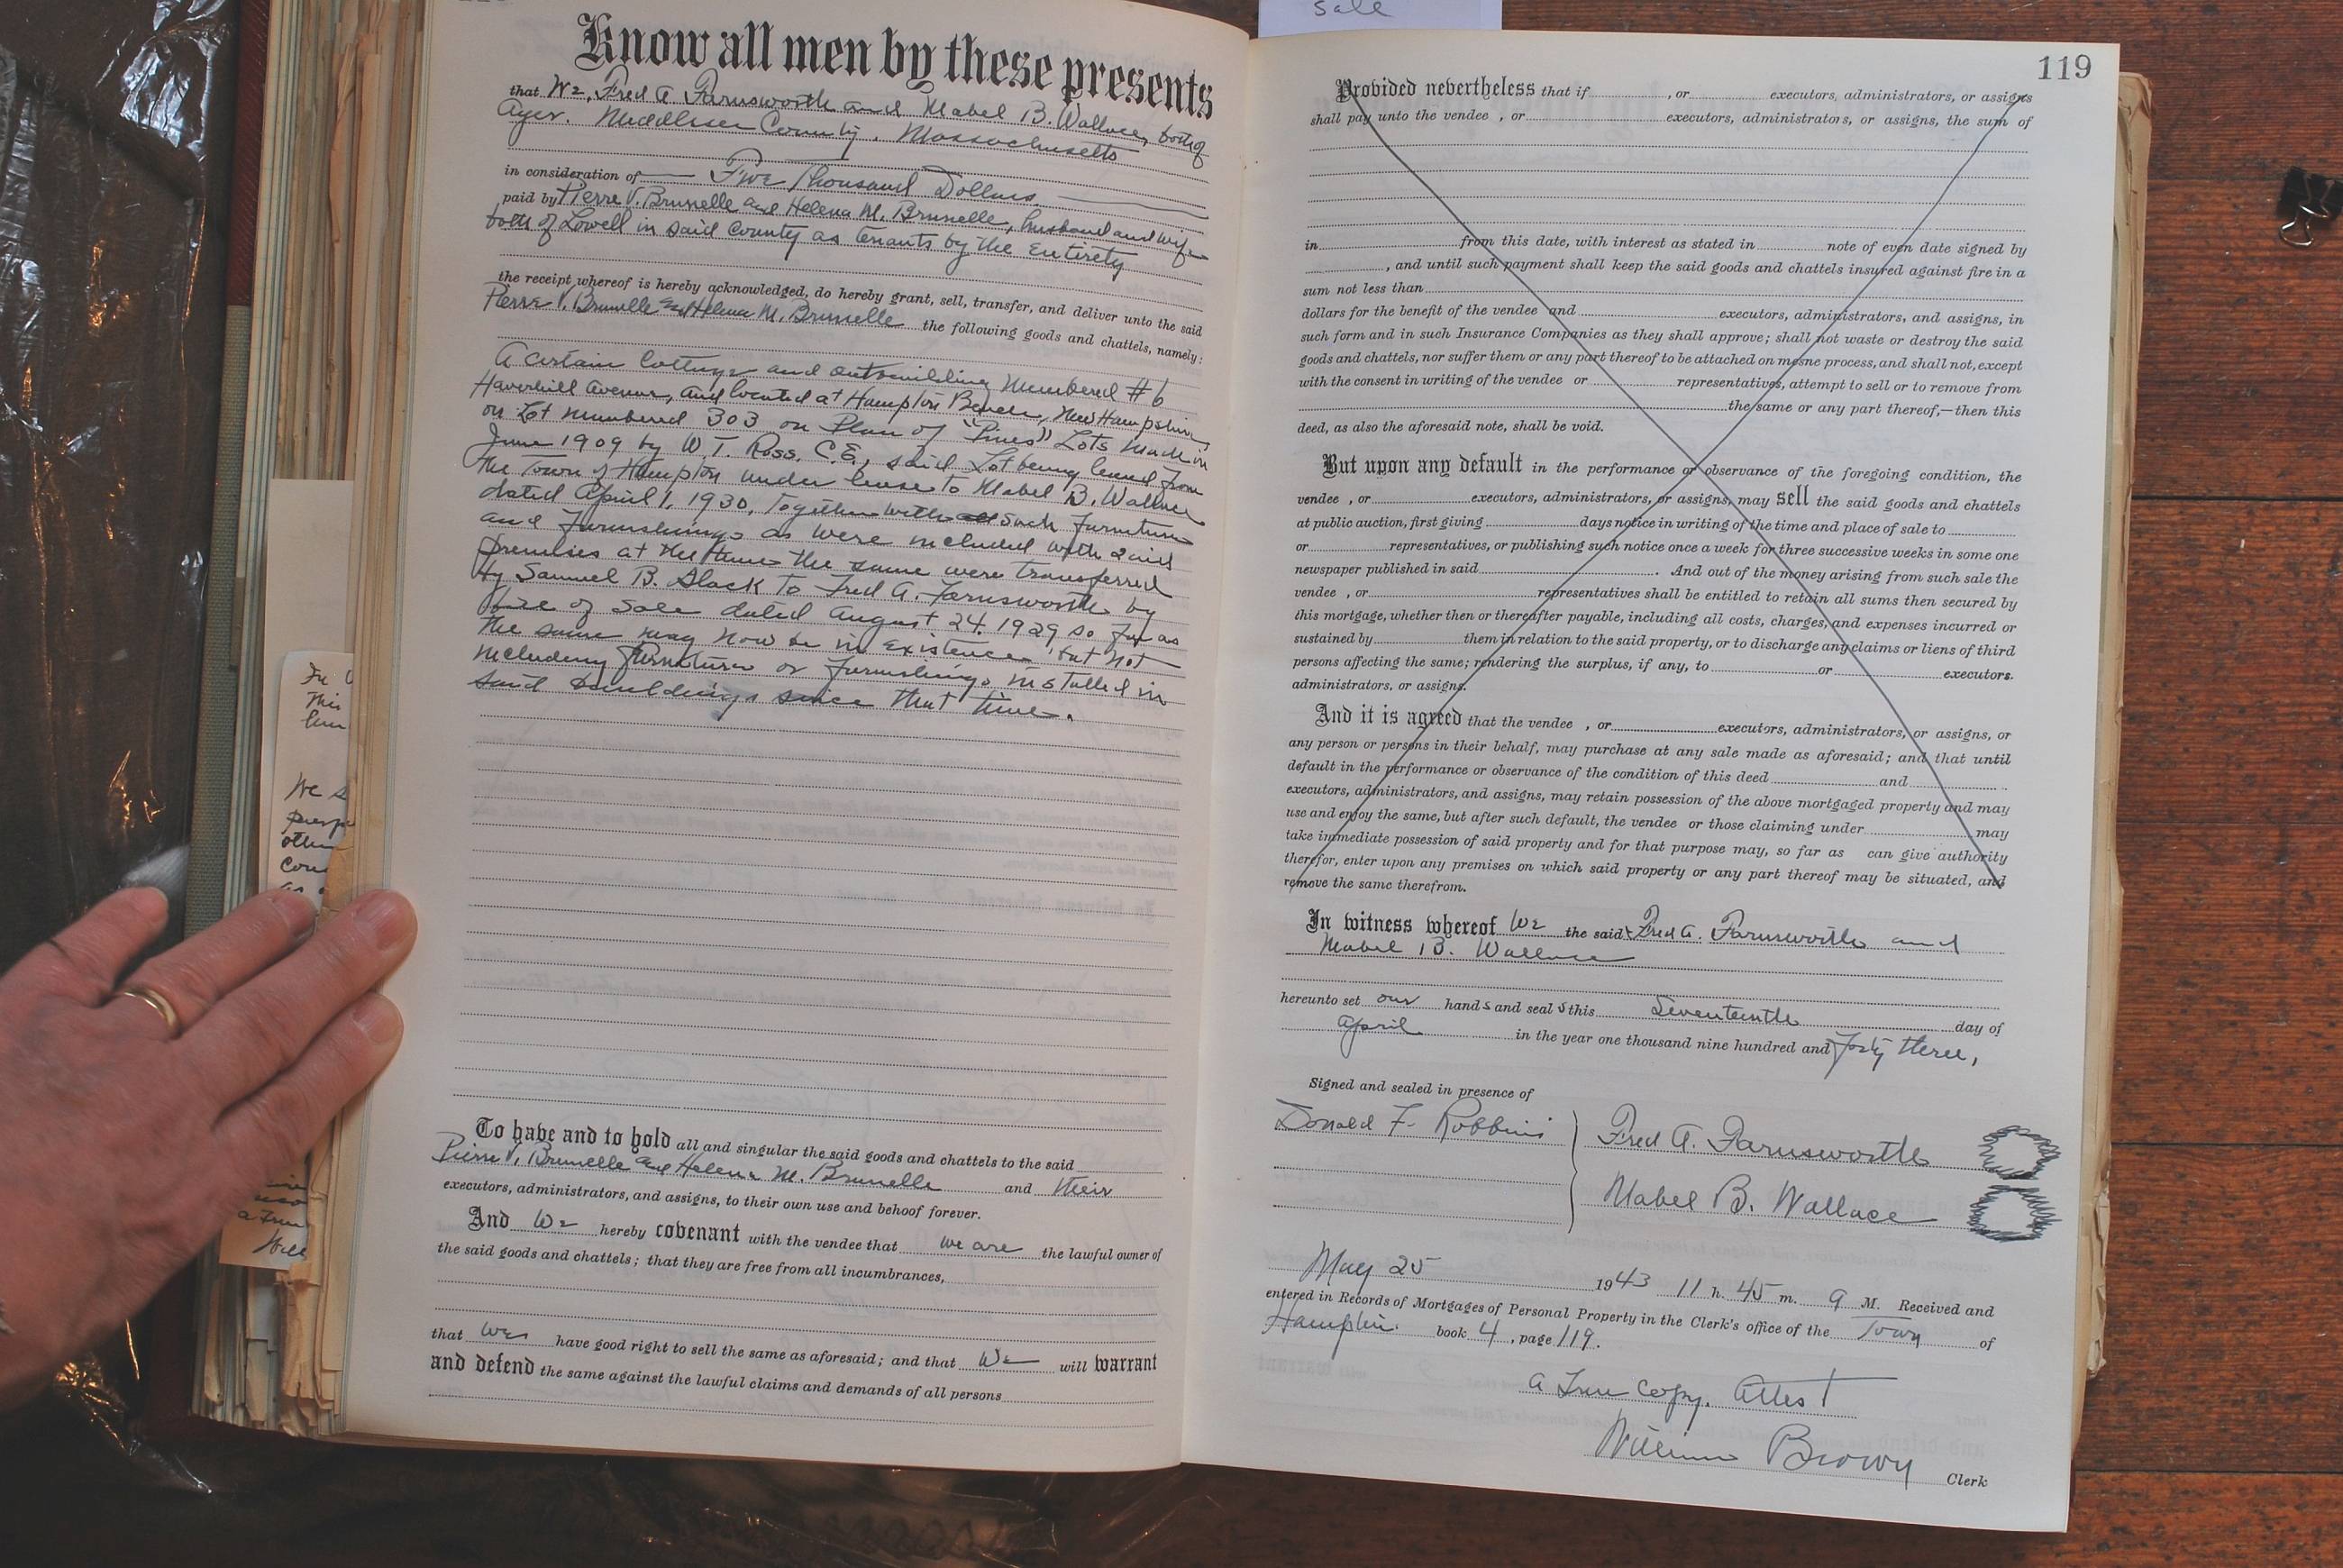 Know all men by these presents
that We, Fred A Farnsworth and Mabel B. Wallace, both of
Ayer. Middlesex County, Massachusetts
in consideration of Five Thousand Dollars
paid by Pierre V. Brunelle and Helena M. Brunelle, husband and wife
both of Lowell in said County as tenants by the Entirety
the receipt whereof is hereby acknowledged, do hereby grant, sell, transfer, and deliver unto the said
Pierre V. Brunelle and Helena M. Brunelle the following goods and chattels, namely:
A certain Cottage and outbuilding Numbered #6
Haverhill Avenue, and located at Hampton Beach, New Hampshire
on Lot numbered 303 on Plan of "Pines" Lots made in
June 1909 by W. T. Ross. C.E., said Lot being leased from
the Town of Hampton under lease to Mabel B. Wallace
dated April 1, 1930, Together with all such furniture
and furnishings as were included with said
premises at the time the same were transferred
by Samuel B. Slack to Fred A. Farnsworth by
bill of sale dated August 24. 1929 so far as
the same may now be in existence, but not
including furniture or furnishings installed in
said buildings since that time.
To have and to hold all and singular the said goods and chattels to the said
Pierre V. Brunelle and Helena M. Brunelle and their
executors, administrators, and assigns, to their own use and behoof forever.
And We hereby covenant with the vendee that we are the lawful owner of
the said goods and chattels; that they are free from all incumbrances,
that we have good right to sell the same as aforesaid; and that We will warrant
and defend the same against the lawful claims and demands of all persons
sale
119
Provided nevertheless that if , or executors, administrators, or assigns
shall pay unto the vendee , or executors, administrators, or assigns, the sum of
in from this date, with interest as stated in note of even date signed by
, and until such payment shall keep the said goods and chattels insured against fire in a
sum not less than
dollars for the benefit of the vendee and executors, administrators, and assigns, in
such form and in such Insurance Companies as they shall approve; shall not waste or destroy the said
goods and chattels, nor suffer them or any part thereof to be attached on mesne process, and shall not, except
with the consent in writing of the vendee or representatives, attempt to sell or to remove from
the same or any part thereof,—then this
deed, as also the aforesaid note, shall be void.
But upon any default in the performance or observance of the foregoing condition, the
vendee , or executors, administrators, or assigns, may sell the said goods and chattels
at public auction, first giving days notice in writing of the time and place of sale to
or representatives, or publishing such notice once a week for three successive weeks in some one
newspaper published in said . And out of the money arising from such sale the
vendee , or representatives shall be entitled to retain all sums then secured by
this mortgage, whether then or thereafter payable, including all costs, charges, and expenses incurred or
sustained by them in relation to the said property, or to discharge any claims or liens of third
persons affecting the same; rendering the surplus, if any, to or executors.
administrators, or assigns.
And it is agreed that the vendee , or executors, administrators, or assigns, or
any person or persons in their behalf, may purchase at any sale made as aforesaid; and that until
default in the performance or observance of the condition of this deed and
executors, administrators, and assigns, may retain possession of the above mortgaged property and may
use and enjoy the same, but after such default, the vendee or those claiming under may
take immediate possession of said property and for that purpose may, so far as can give authority
therefor, enter upon any premises on which said property or any part thereof may be situated, and
remove the same therefrom.
In witness whereof We the said Fred A. Farnsworth and
Mabel B. Wallace
hereunto set our hands and seals this Seventeenth day of
April in the year one thousand nine hundred and forty three,
Signed and sealed in presence of
Donald F. Robbins
Fred A. Farnsworth
Mabel B. Wallace
May 25 1943 11 h. 45 m. a M. Received and
entered in Records of Mortgages of Personal Property in the Clerk's office of the Town of
Hampton book 4, page 119.
A True Copy. Attest
William Brown Clerk